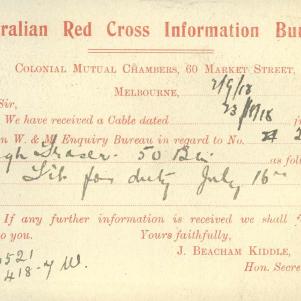 ralian Red Cross Information Bu
COLONIAL MUTUAL CHAMBERS, 60 MARKET STREET,
MELBOURNE, 2/9/18
Sir,
We have received a Cable dated 23/8/18
n W. & M. Enquiry Bureau in regard to No. 2
gh Fraser. 50 Bn. as fol
fit for duty July 16
If any further information is received we shall
o you. Yours faithfully,
J. BEACHAM KIDDLE,
Hon. Secre
521
418-4 W.